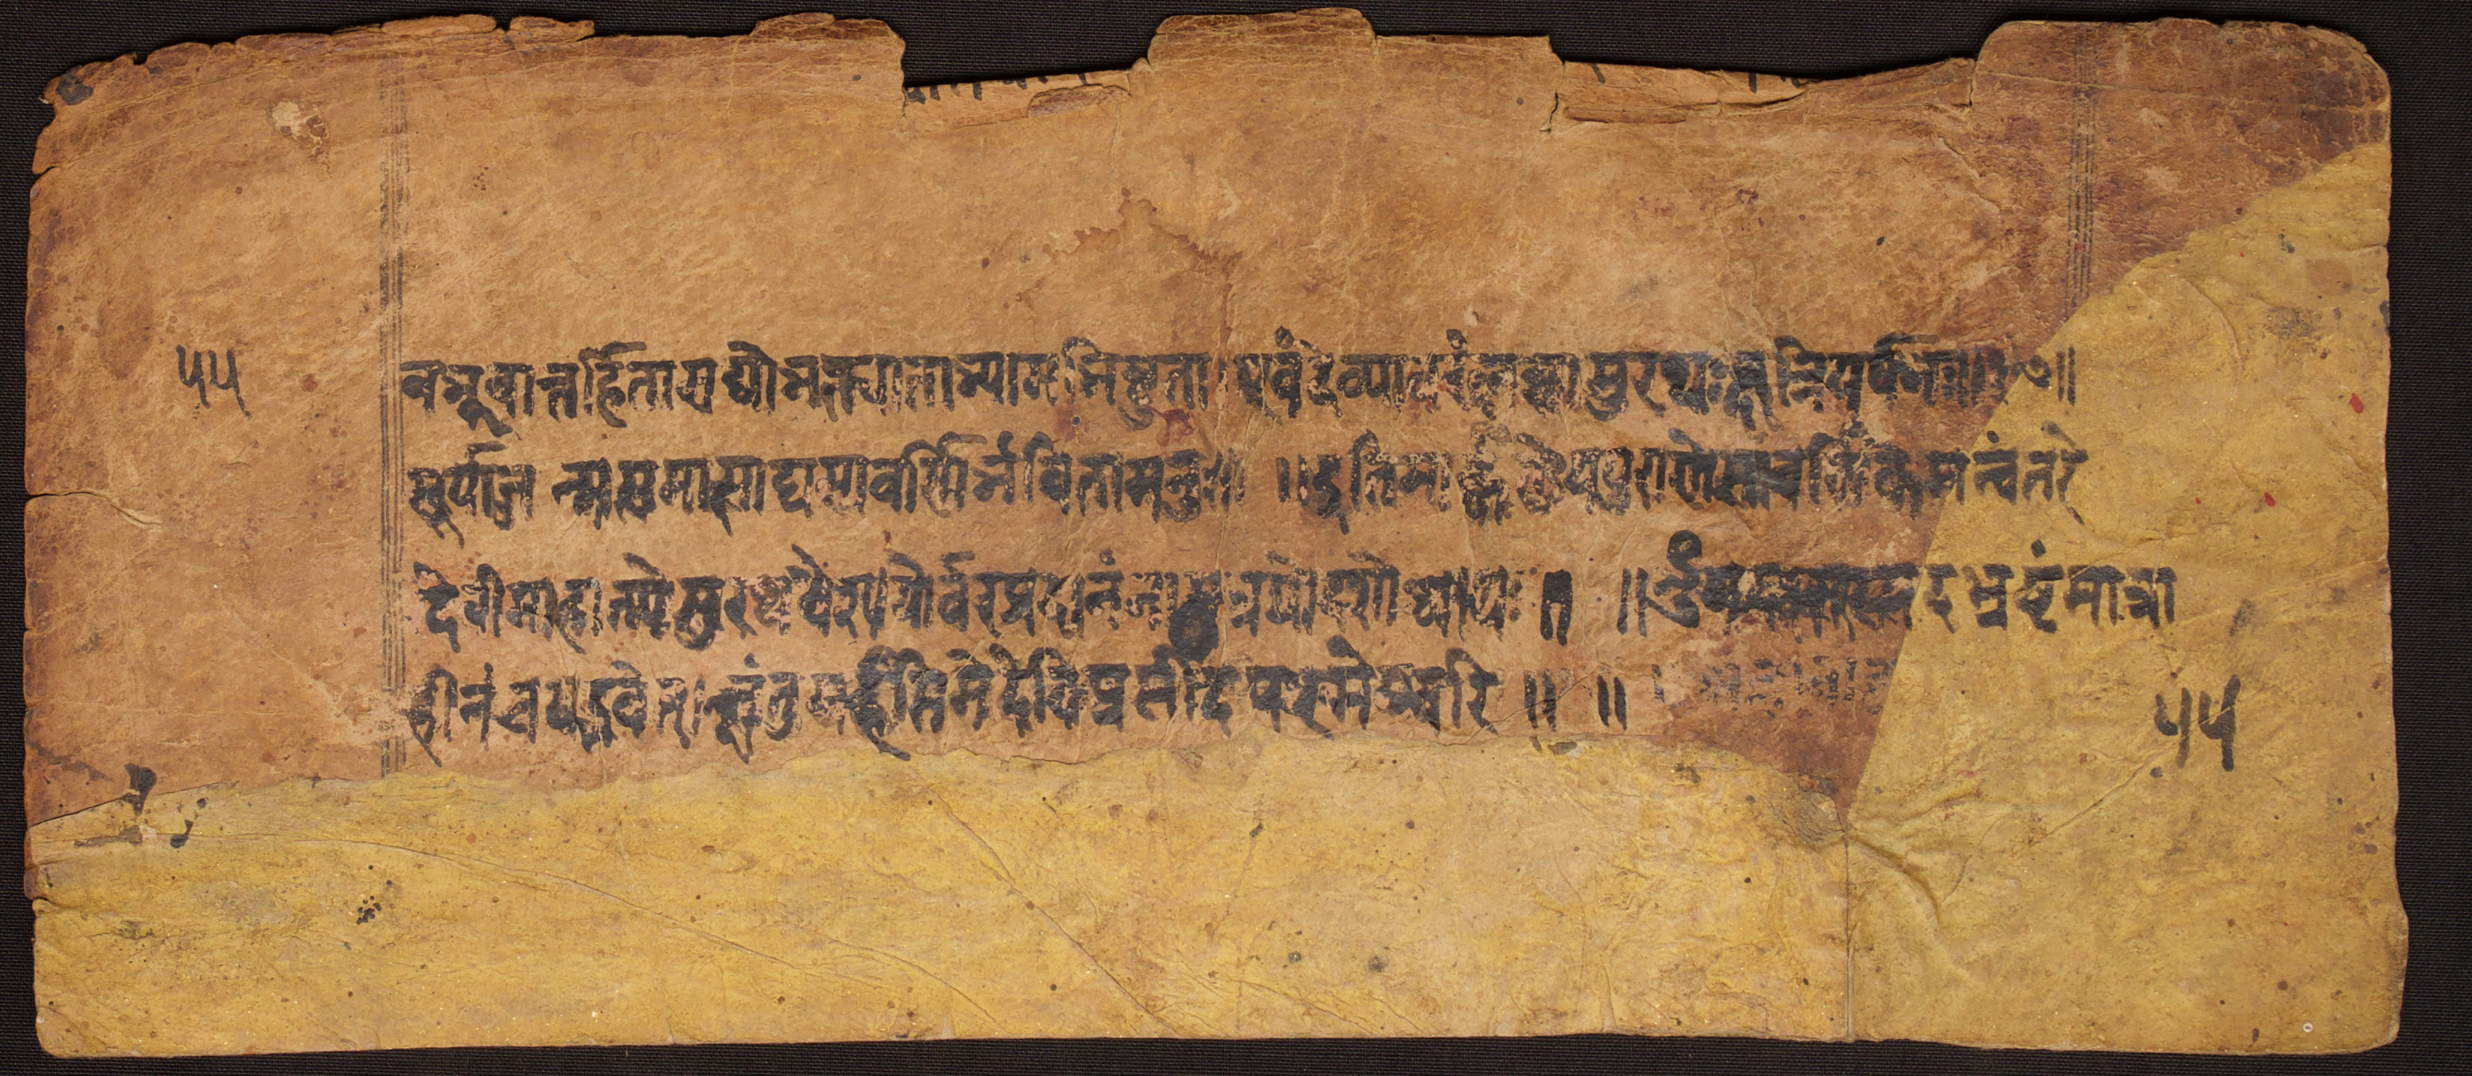 ५५
बभूवान्तर्हिता सद्यो भक्त्या ताभ्यामभिष्टुता एवं देव्या वरं लब्ध्वा सुरथः क्षत्रियर्षभः ॥
सूर्याज्जन्म समासाद्य सावर्णिर्भविता मनुः ॥ इति मार्कण्डेयपुराणे सावर्णिके मन्वंतरे
देवीमाहात्म्ये सुरथवैश्ययोर्वरप्रदानं नाम त्रयोदशोध्यायः ॥ ॐ यदक्षरपदभ्रष्टं मात्रा
हीनं च यद्भवेत् तत्क्षंतुमर्हसि मे देवि प्रसीद परमेश्वरि ॥ ॥
५५